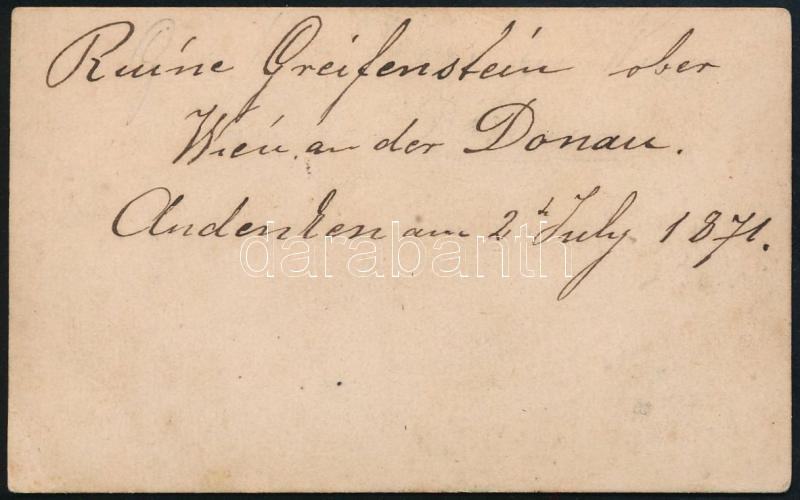 Ruine Greifenstein ober
Wien an der Donau.
Andenken am 2t July 1871.
darabanth